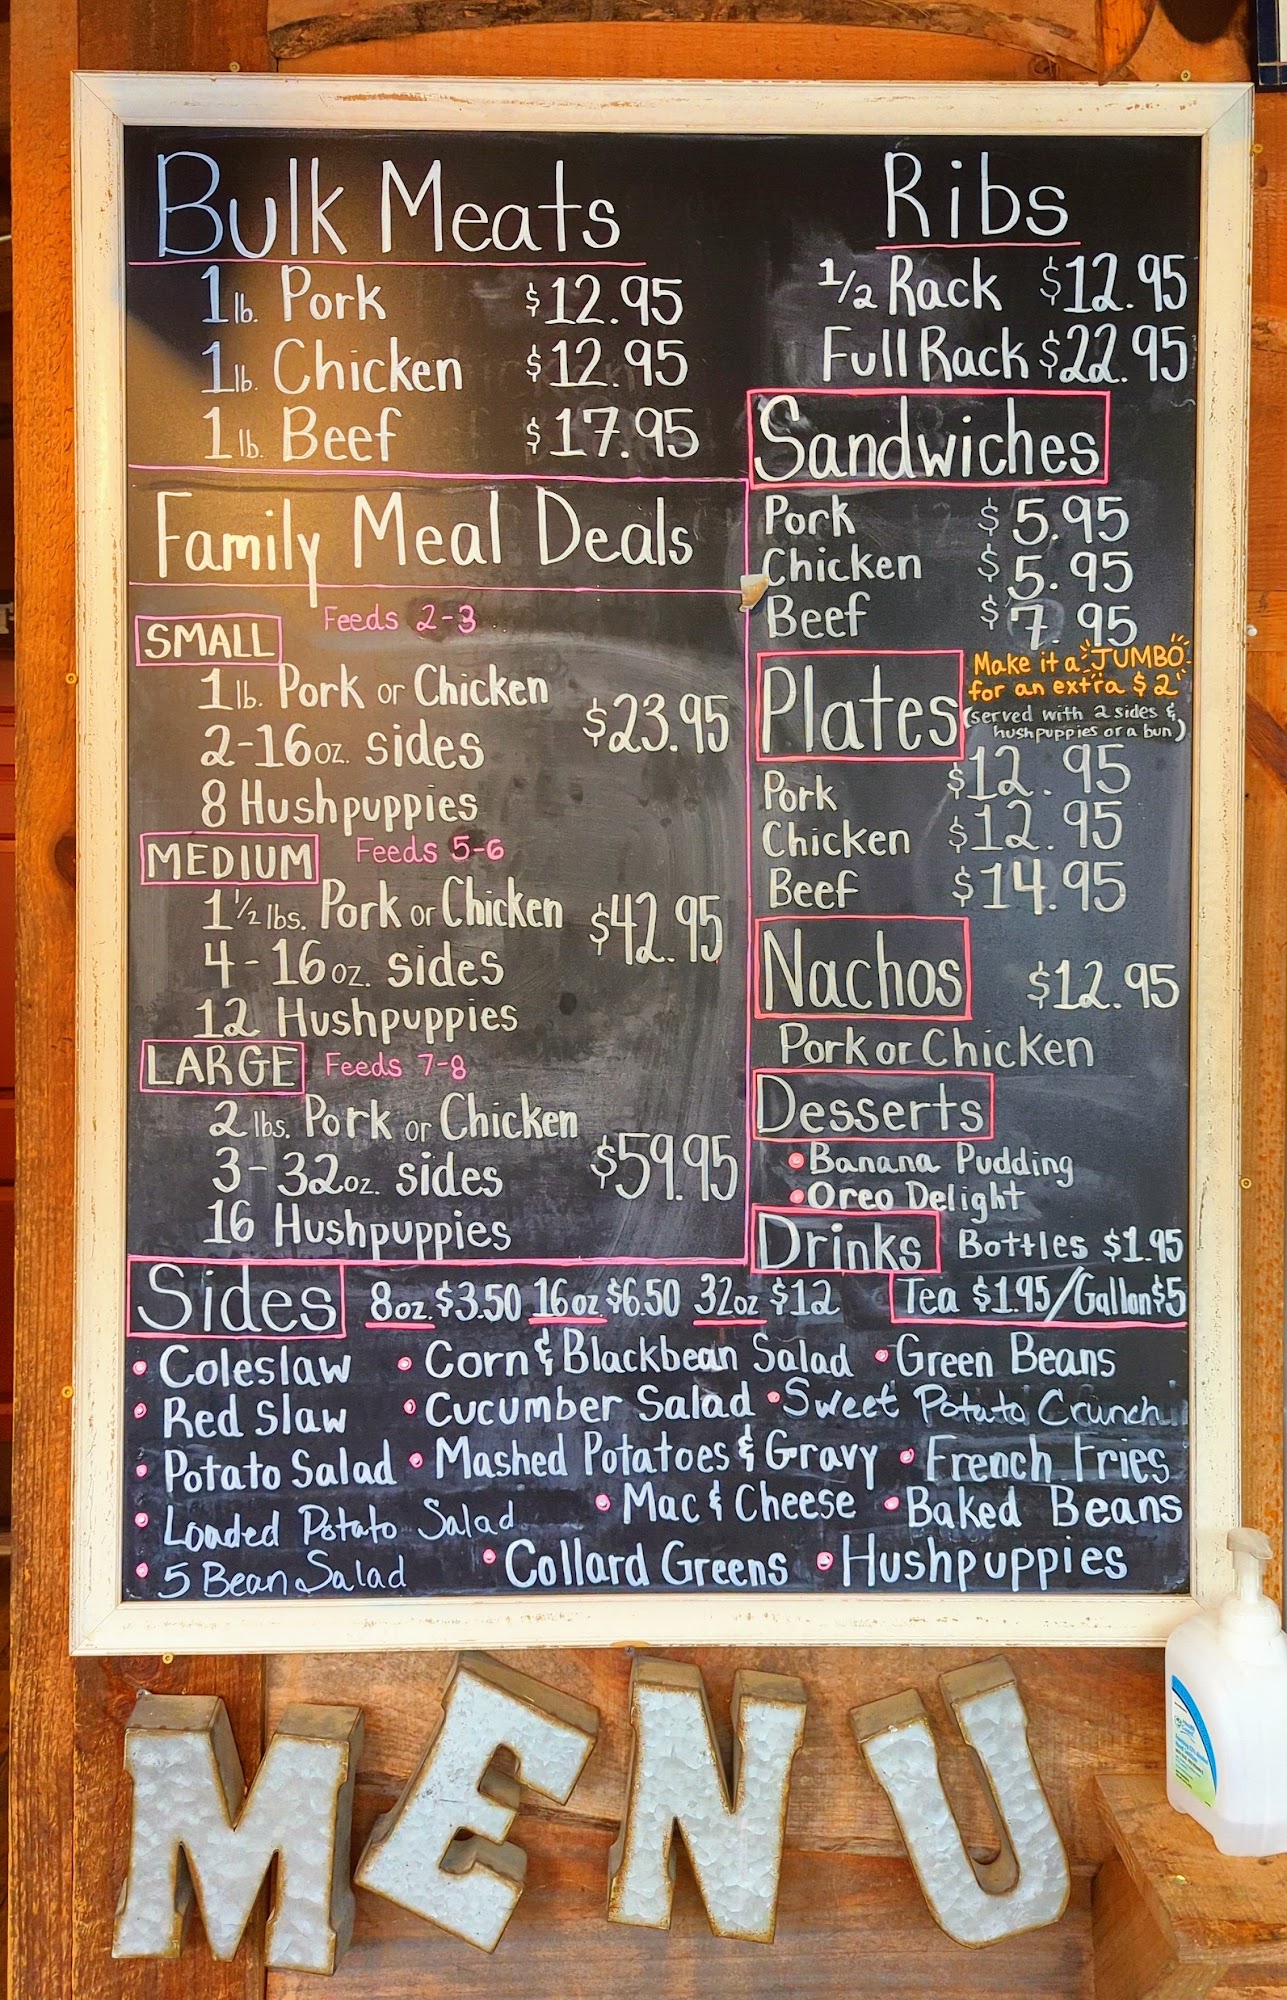 Bulk Meats
1 lb. Pork $12.95
1 lb. Chicken $12.95
1 lb. Beef $17.95
Family Meal Deals
SMALL Feeds 2-3
1 lb. Pork or Chicken
2-16 oz. sides
8 Hushpuppies
$23.95
MEDIUM Feeds 5-6
1 1/2 lbs. Pork or Chicken
4-16 oz. sides
12 Hushpuppies
$42.95
LARGE Feeds 7-8
2 lbs. Pork or Chicken
3-32 oz. sides
16 Hushpuppies
$59.95
Ribs
1/2 Rack $12.95
Full Rack $22.95
Sandwiches
Pork $5.95
Chicken $5.95
Beef $7.95
Make it a JUMBO
for an extra $2
Plates
(served with 2 sides &
hushpuppies or a bun)
Pork $12.95
Chicken $12.95
Beef $14.95
Nachos $12.95
Pork or Chicken
Desserts
• Banana Pudding
• Oreo Delight
Drinks Bottles $1.95
Tea $1.95/Gallon $5
Sides 8oz. $3.50 16oz $6.50 32oz $12
• Coleslaw • Corn & Blackbean Salad • Green Beans
• Red Slaw • Cucumber Salad • Sweet Potato Crunch
• Potato Salad • Mashed Potatoes & Gravy • French Fries
• Loaded Potato Salad • Mac & Cheese • Baked Beans
• 5 Bean Salad • Collard Greens • Hushpuppies
MENU